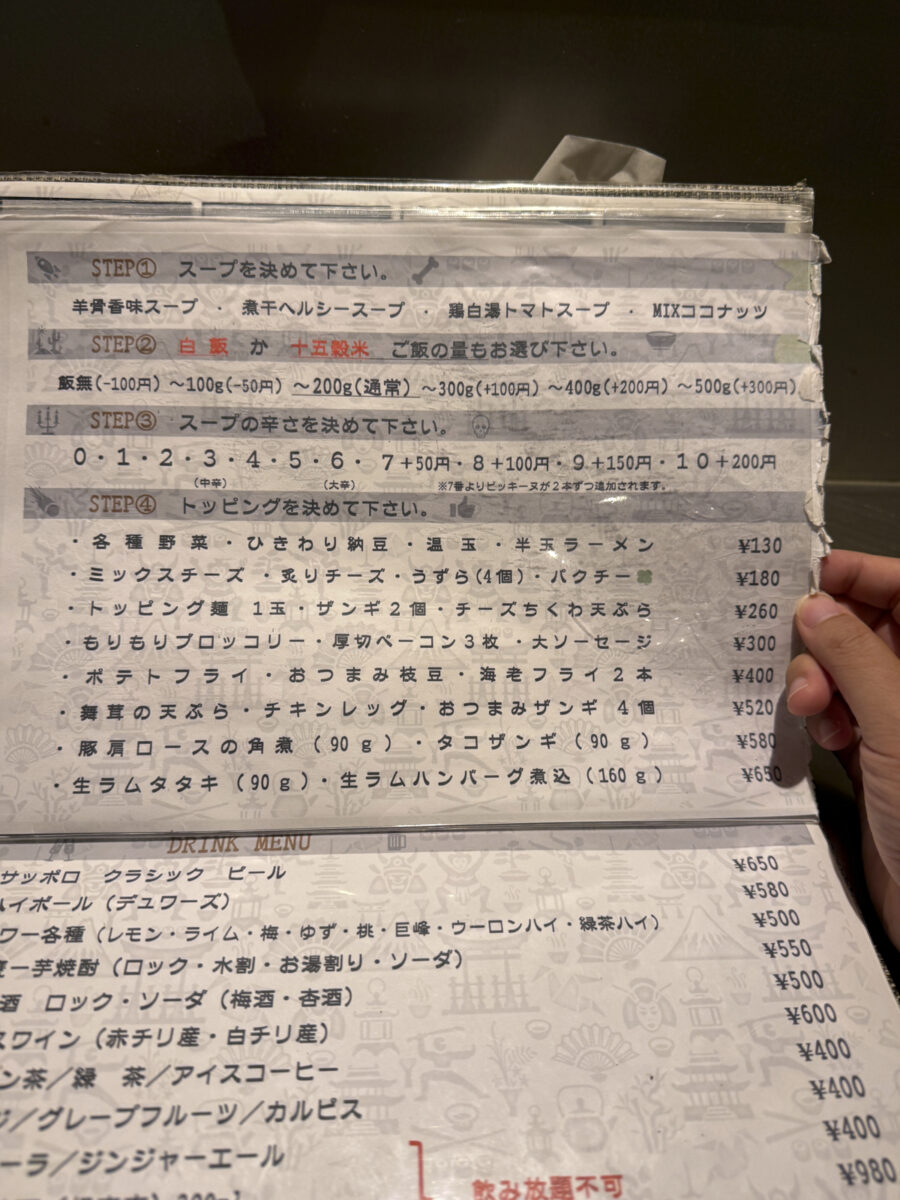 STEP① スープを決めて下さい。
羊骨香味スープ ・ 煮干ヘルシースープ ・ 鶏白湯トマトスープ ・ MIXココナッツ
STEP② 白飯 か 十五穀米 ご飯の量もお選び下さい。
飯無(-100円) 〜100g(-50円) 〜200g(通常) 〜300g(+100円) 〜400g(+200円) 〜500g(+300円)
STEP③ スープの辛さを決めて下さい。
0・1・2・3・4・5・6・ 7+50円・8+100円・9+150円・10+200円
(中辛) (大辛) ※7番よりピッキーヌが2本ずつ追加されます。
STEP④ トッピングを決めて下さい。
・各種野菜・ひきわり納豆・温玉・半玉ラーメン ¥130
・ミックスチーズ ・炙りチーズ・うずら(4個)・パクチー ¥180
・トッピング麺 1玉・ザンギ2個・チーズちくわ天ぷら ¥260
・もりもりブロッコリー・厚切ベーコン3枚 ・大ソーセージ ¥300
・ポテトフライ・おつまみ枝豆・海老フライ2本 ¥400
・舞茸の天ぷら・チキンレッグ・おつまみザンギ 4個 ¥520
・豚肩ロースの角煮 (90g) ・タコザンギ(90g) ¥580
・生ラムタタキ(90g)・生ラムハンバーグ煮込(160g) ¥650
DRINK MENU
サッポロ クラシック ビール ¥650
ハイボール (デュワーズ) ¥580
ワー各種 (レモン・ライム・梅・ゆず・桃・巨峰・ウーロンハイ・緑茶ハイ) ¥500
一芋焼酎 (ロック・水割・お湯割り・ソーダ) ¥550
酒 ロック・ソーダ (梅酒・杏酒) ¥500
スワイン (赤チリ産・白チリ産) ¥600
ン茶/緑 茶/アイスコーヒー ¥400
ジ/グレープフルーツ/カルピス ¥400
ーラ/ジンジャーエール ¥400
¥980
飲み放題不可